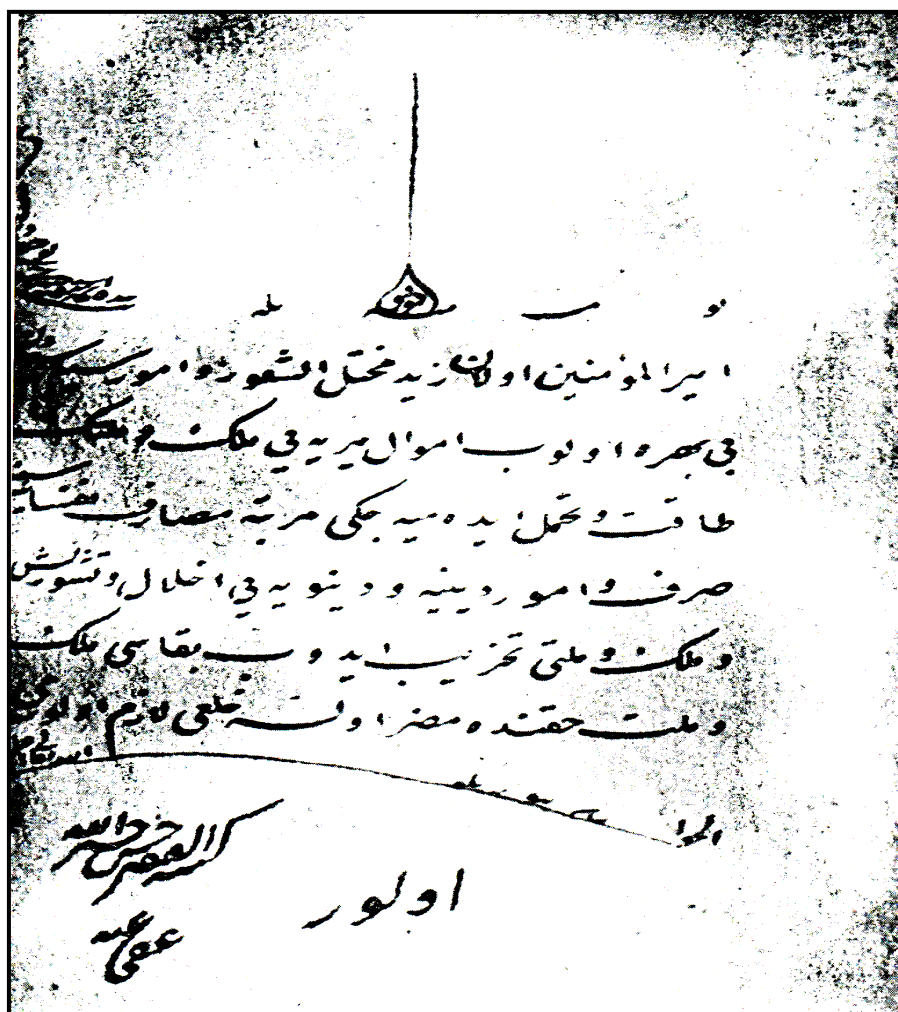 امير المؤمنين اولان زيد مختل الشعور و امور
بى بهره اولوب اموال ميريه يى ملك و ملتك
طاقت و تحمل ايده ميه جكى مرتبه مصارف نفسانيه سنه
صرف و امور دينيه و دنيويه يى اخلال و تشويش
و ملك و ملتى تخريب ايدوب بقاسى ملك
و ملت حقنده مضر اولسه خلعى لازم اولورمى
الجواب
اولور
كتبه الفقير حسن خير الله
عفى عنه